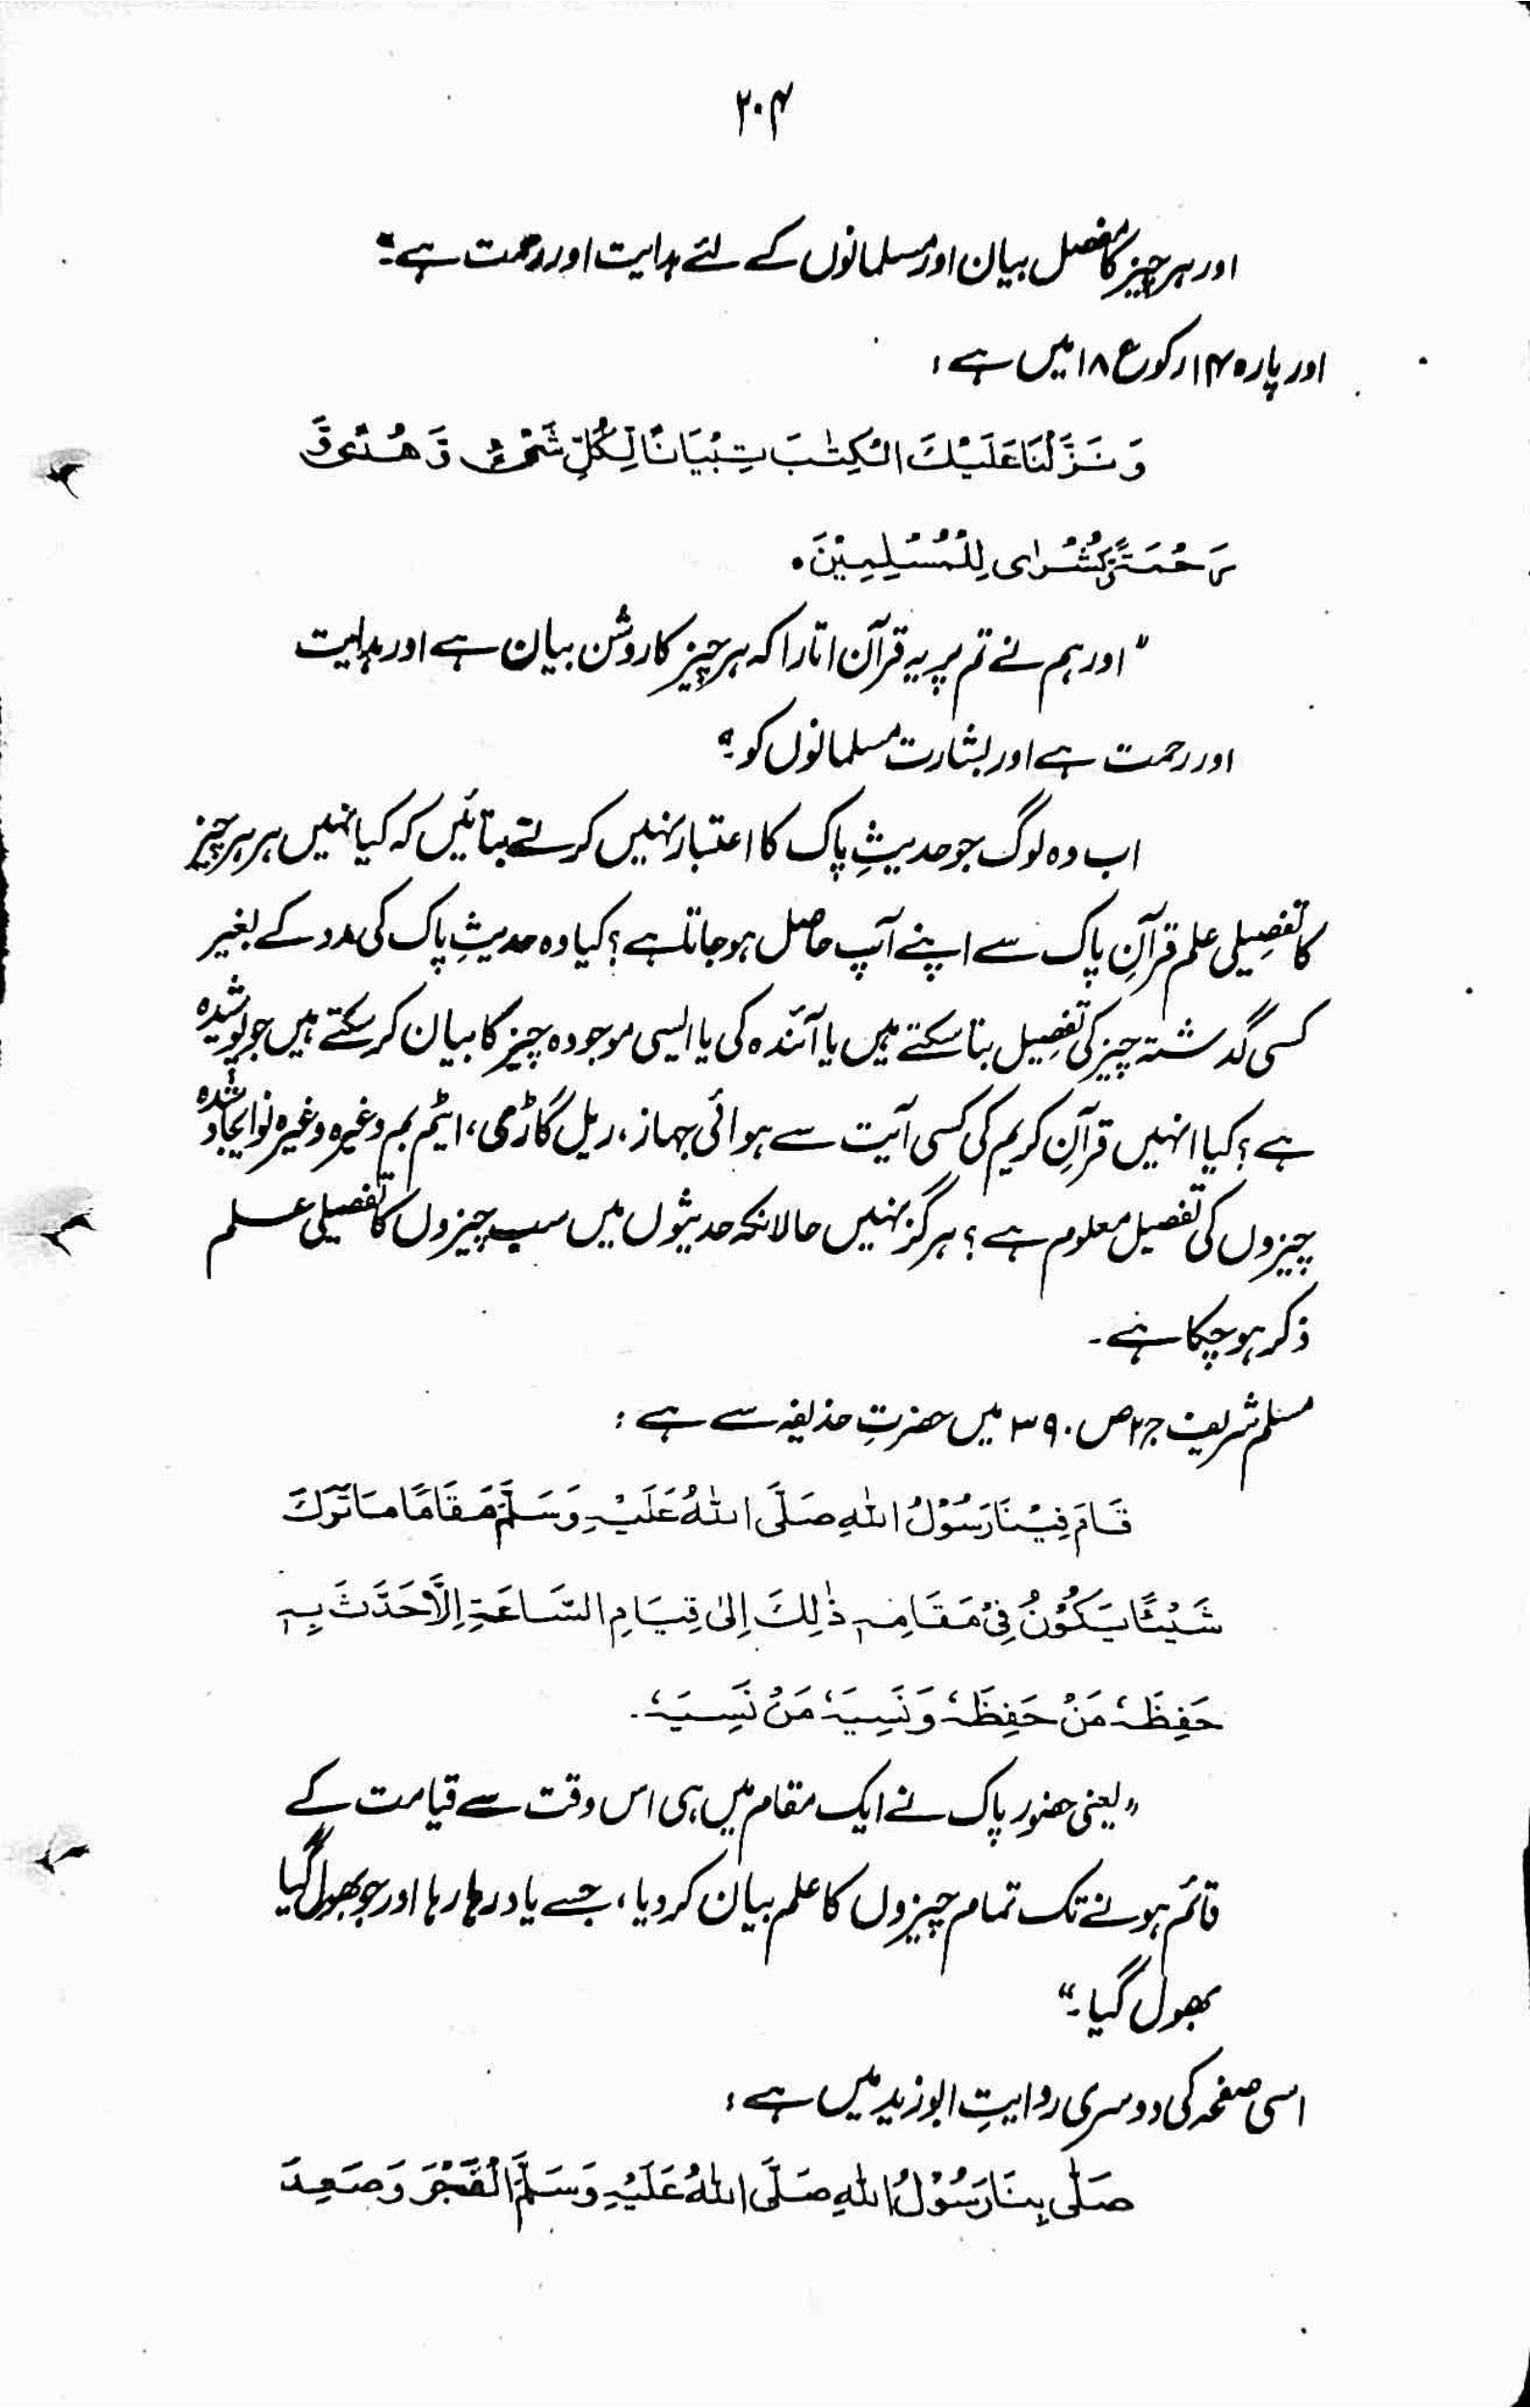 ۲۰۴
اور ہر چیز کا مفصل بیان اور مسلمانوں کے لئے ہدایت اور رحمت ہے۔"
اور پارہ ۱۴ رکوع ۱۸ میں ہے :
وَنَزَّلْنَا عَلَیْكَ الْکِتٰبَ تِبْیَانًا لِّکُلِّ شَیْءٍ وَّ هُدًی وَّ
رَحْمَةً وَّبُشْرٰی لِلْمُسْلِمِیْنَ ۰
" اور ہم نے تم پر یہ قرآن اتارا کہ ہر چیز کا روشن بیان ہے اور ہدایت
اور رحمت ہے اور بشارت مسلمانوں کو۔"
اب وہ لوگ جو حدیثِ پاک کا اعتبار نہیں کرتے بتائیں کہ کیا انہیں ہر ہر چیز
کا تفصیلی علم قرآنِ پاک سے اپنے آپ حاصل ہو جاتا ہے ؟ کیا وہ حدیثِ پاک کی مدد کے بغیر
کسی گذشتہ چیز کی تفصیل بتا سکتے ہیں یا آئندہ کی یا ایسی موجودہ چیز کا بیان کر سکتے ہیں جو پوشیدہ
ہے ؟ کیا انہیں قرآنِ کریم کی کسی آیت سے ہوائی جہاز، ریل گاڑی، ایٹم بم وغیرہ وغیرہ نو ایجاد شدہ
چیزوں کی تفصیل معلوم ہے ؟ ہرگز نہیں حالانکہ حدیثوں میں سب چیزوں کا تفصیلی علم
ذکر ہو چکا ہے۔
مسلم شریف ج ۲ ص ۳۹۰ میں حضرتِ حذیفہ سے ہے :
قَامَ فِیْنَا رَسُوْلُ اللهِ صَلَّی اللهُ عَلَیْهِ وَسَلَّمَ مَقَامًا مَا تَرَكَ
شَیْئًا یَکُوْنُ فِیْ مَقَامِهٖ ذٰلِكَ اِلٰی قِیَامِ السَّاعَةِ اِلَّا حَدَّثَ بِهٖ
حَفِظَهٗ مَنْ حَفِظَهٗ وَنَسِیَهٗ مَنْ نَسِیَهٗ۔
"یعنی حضور پاک نے ایک مقام میں ہی اس وقت سے قیامت کے
قائم ہونے تک تمام چیزوں کا علم بیان کر دیا، جسے یاد رہا رہا اور جو بھول گیا
بھول گیا۔"
اسی صفحہ کی دوسری روایتِ ابو زید میں ہے :
صَلّٰی بِنَا رَسُوْلُ اللهِ صَلَّی اللهُ عَلَیْهِ وَسَلَّمَ الْفَجْرَ وَصَعِدَ